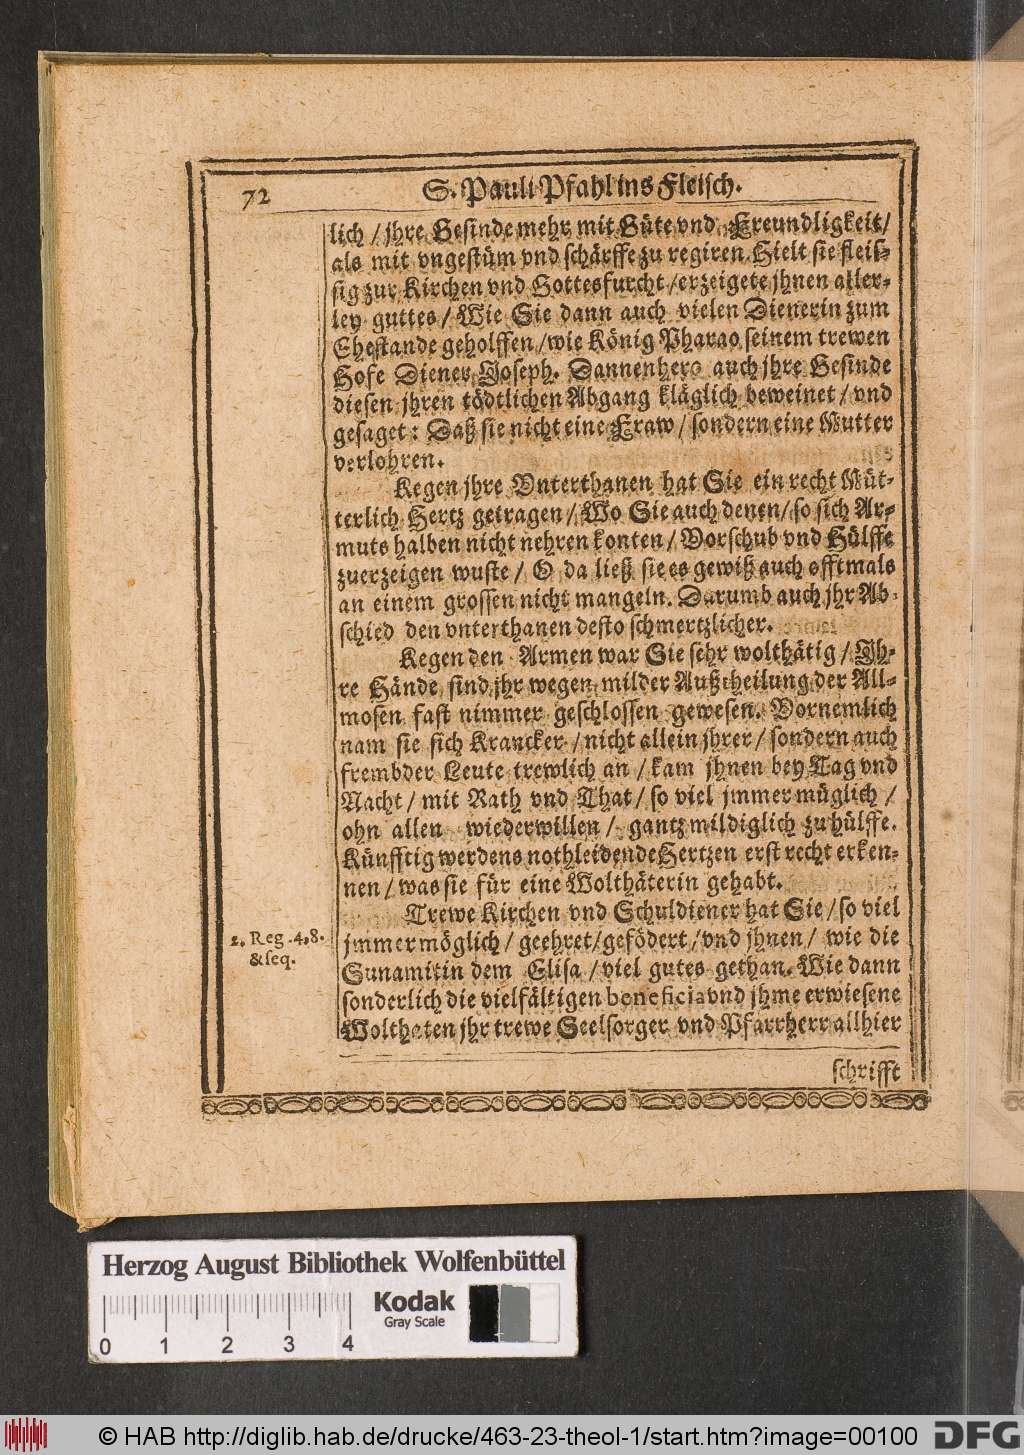 72
S. Pauli Pfahl ins Fleisch.
lich / jhre Gesinde mehr mit Güte vnd Freundligkeit /
als mit vngestüm vnd schärffe zu regiren. Hielt sie fleis-
sig zur Kirchen vnd Gottesfurcht / erzeigete jhnen aller-
ley guttes / Wie Sie dann auch vielen Dienerin zum
Ehestande geholffen / wie König Pharao seinem trewen
Hofe Diener Joseph. Dannenhero auch jhre Gesinde
diesen jhren tödtlichen Abgang kläglich beweinet / vnd
gesaget: Daß sie nicht eine Fraw / sondern eine Mutter
verlohren.
Kegen jhre Vnterthanen hat Sie ein recht Müt-
terlich Hertz getragen / Wo Sie auch denen / so sich Ar-
muts halben nicht nehren konten / Vorschub vnd Hülffe
zuerzeigen wuste / O da ließ sie es gewiß auch offtmals
an einem grossen nicht mangeln. Darumb auch jhr Ab-
schied den vnterthanen desto schmertzlicher.
Kegen den Armen war Sie sehr wolthätig / Ih-
re Hände sind jhr wegen milder Außtheilung der All-
mosen fast nimmer geschlossen gewesen. Vornemlich
nam sie sich Krancker / nicht allein jhrer / sondern auch
frembder Leute trewlich an / kam jhnen bey Tag vnd
Nacht / mit Rath vnd That / so viel jmmer müglich /
ohn allen wiederwillen / gantz mildiglich zu hülffe.
Künfftig werdens nothleidende Hertzen erst recht erken-
nen / was sie für eine Wolthäterin gehabt.
Trewe Kirchen vnd Schuldiener hat Sie / so viel
2. Reg. 4, 8.
&seq.
jmmer möglich / geehret / gefödert / vnd jhnen / wie die
Sunamitin dem Elisa / viel gutes gethan. Wie dann
sonderlich die vielfältigen beneficia vnd jhme erwiesene
Wolthaten jhr trewe Seelsorger vnd Pfarrherr allhier
schrifft
Herzog August Bibliothek Wolfenbüttel
Kodak
Gray Scale
0 1 2 3 4
© HAB http://diglib.hab.de/drucke/463-23-theol-1/start.htm?image=00100
DFG